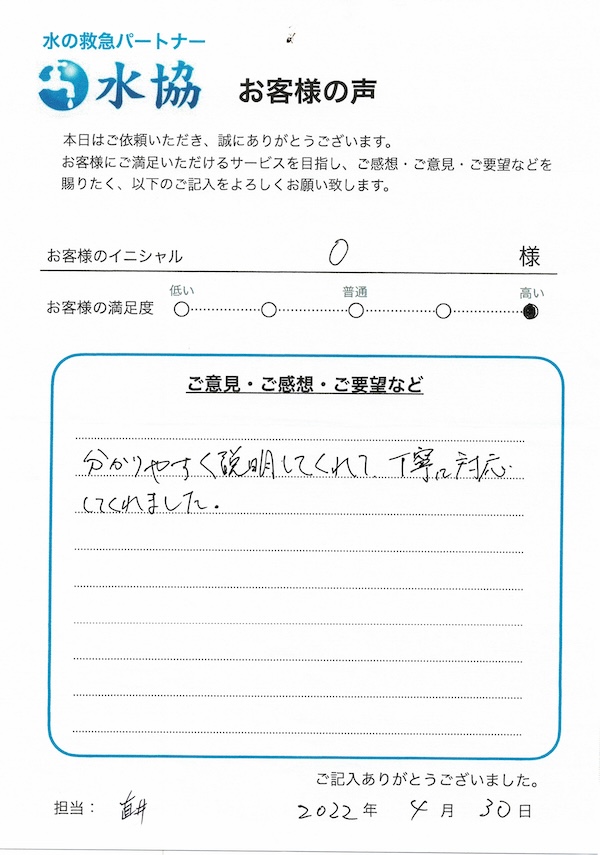 水の救急パートナー
水協 お客様の声
本日はご依頼いただき、誠にありがとうございます。
お客様にご満足いただけるサービスを目指し、ご感想・ご意見・ご要望などを
賜りたく、以下のご記入をよろしくお願い致します。
お客様のイニシャル O 様
低い 普通 高い
お客様の満足度
ご意見・ご感想・ご要望など
分かりやすく説明してくれて、丁寧に対応
してくれました。
ご記入ありがとうございました。
担当: 2022年 4月 30日